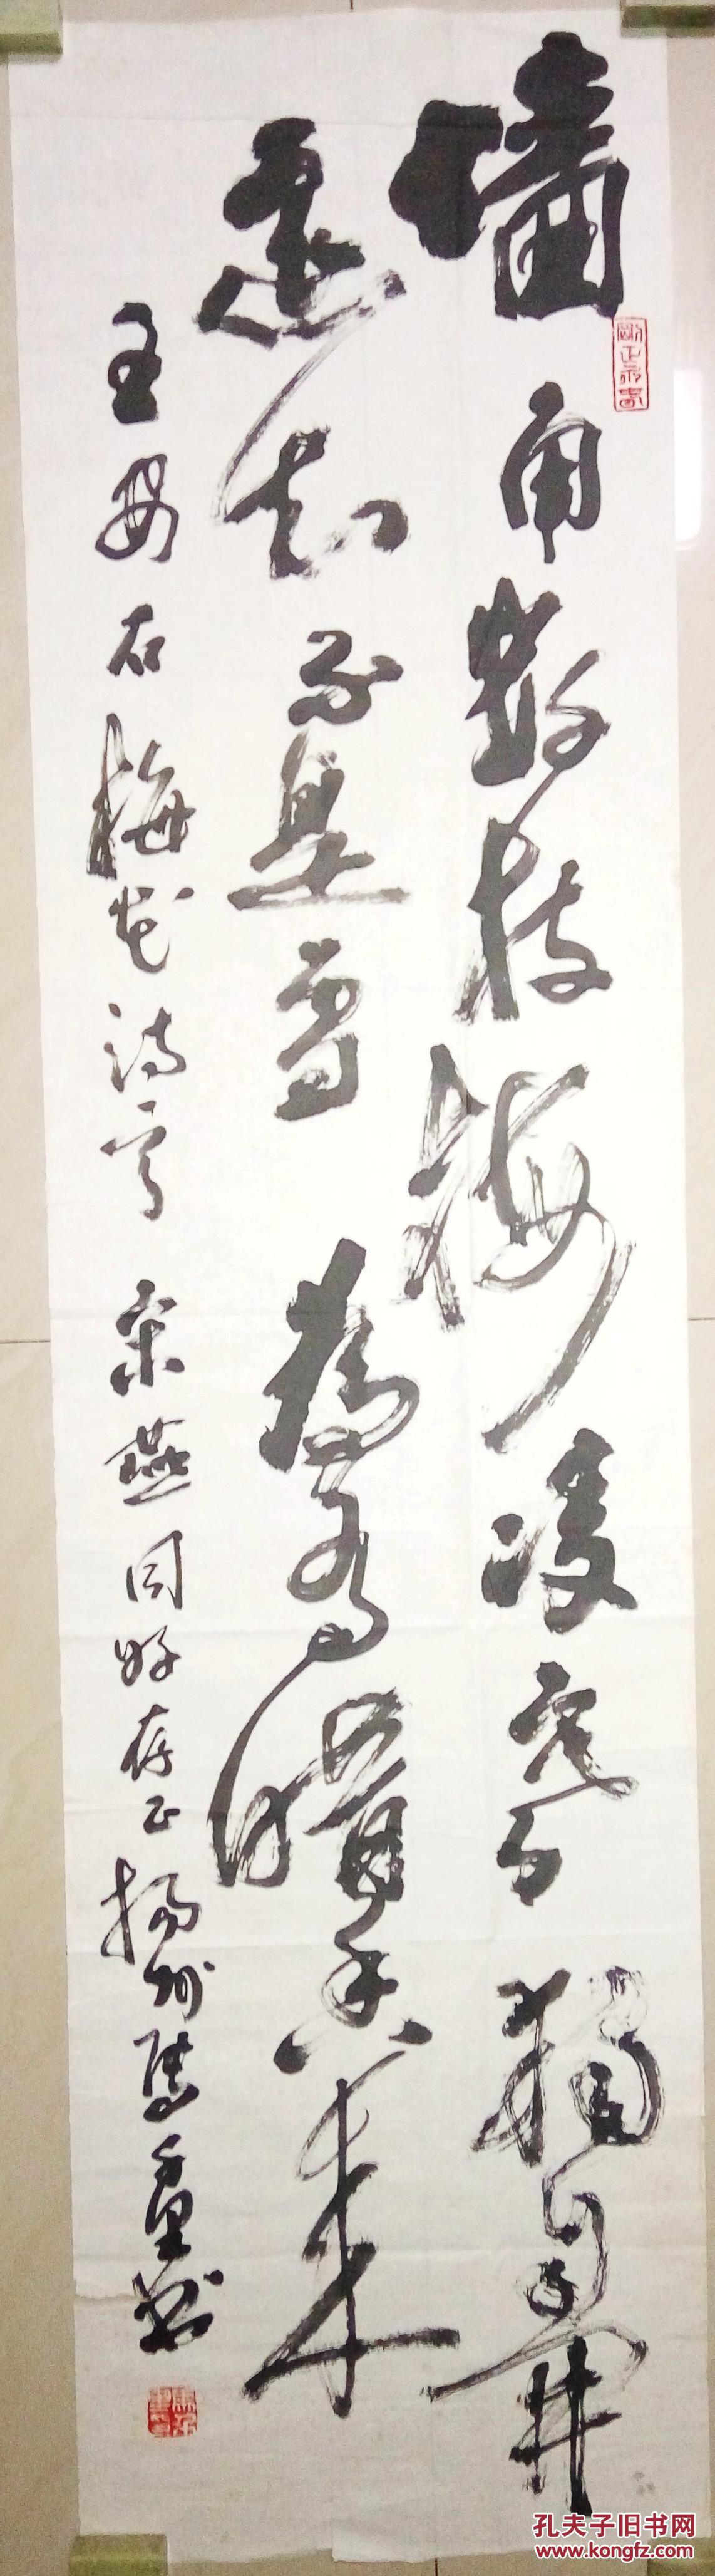 墻角數枝梅凌寒獨自開
遥知不是雪為有暗香來
王安石梅花詩一首 宋燕同好存正 揚州 書
孔夫子旧书网
www.kongfz.com